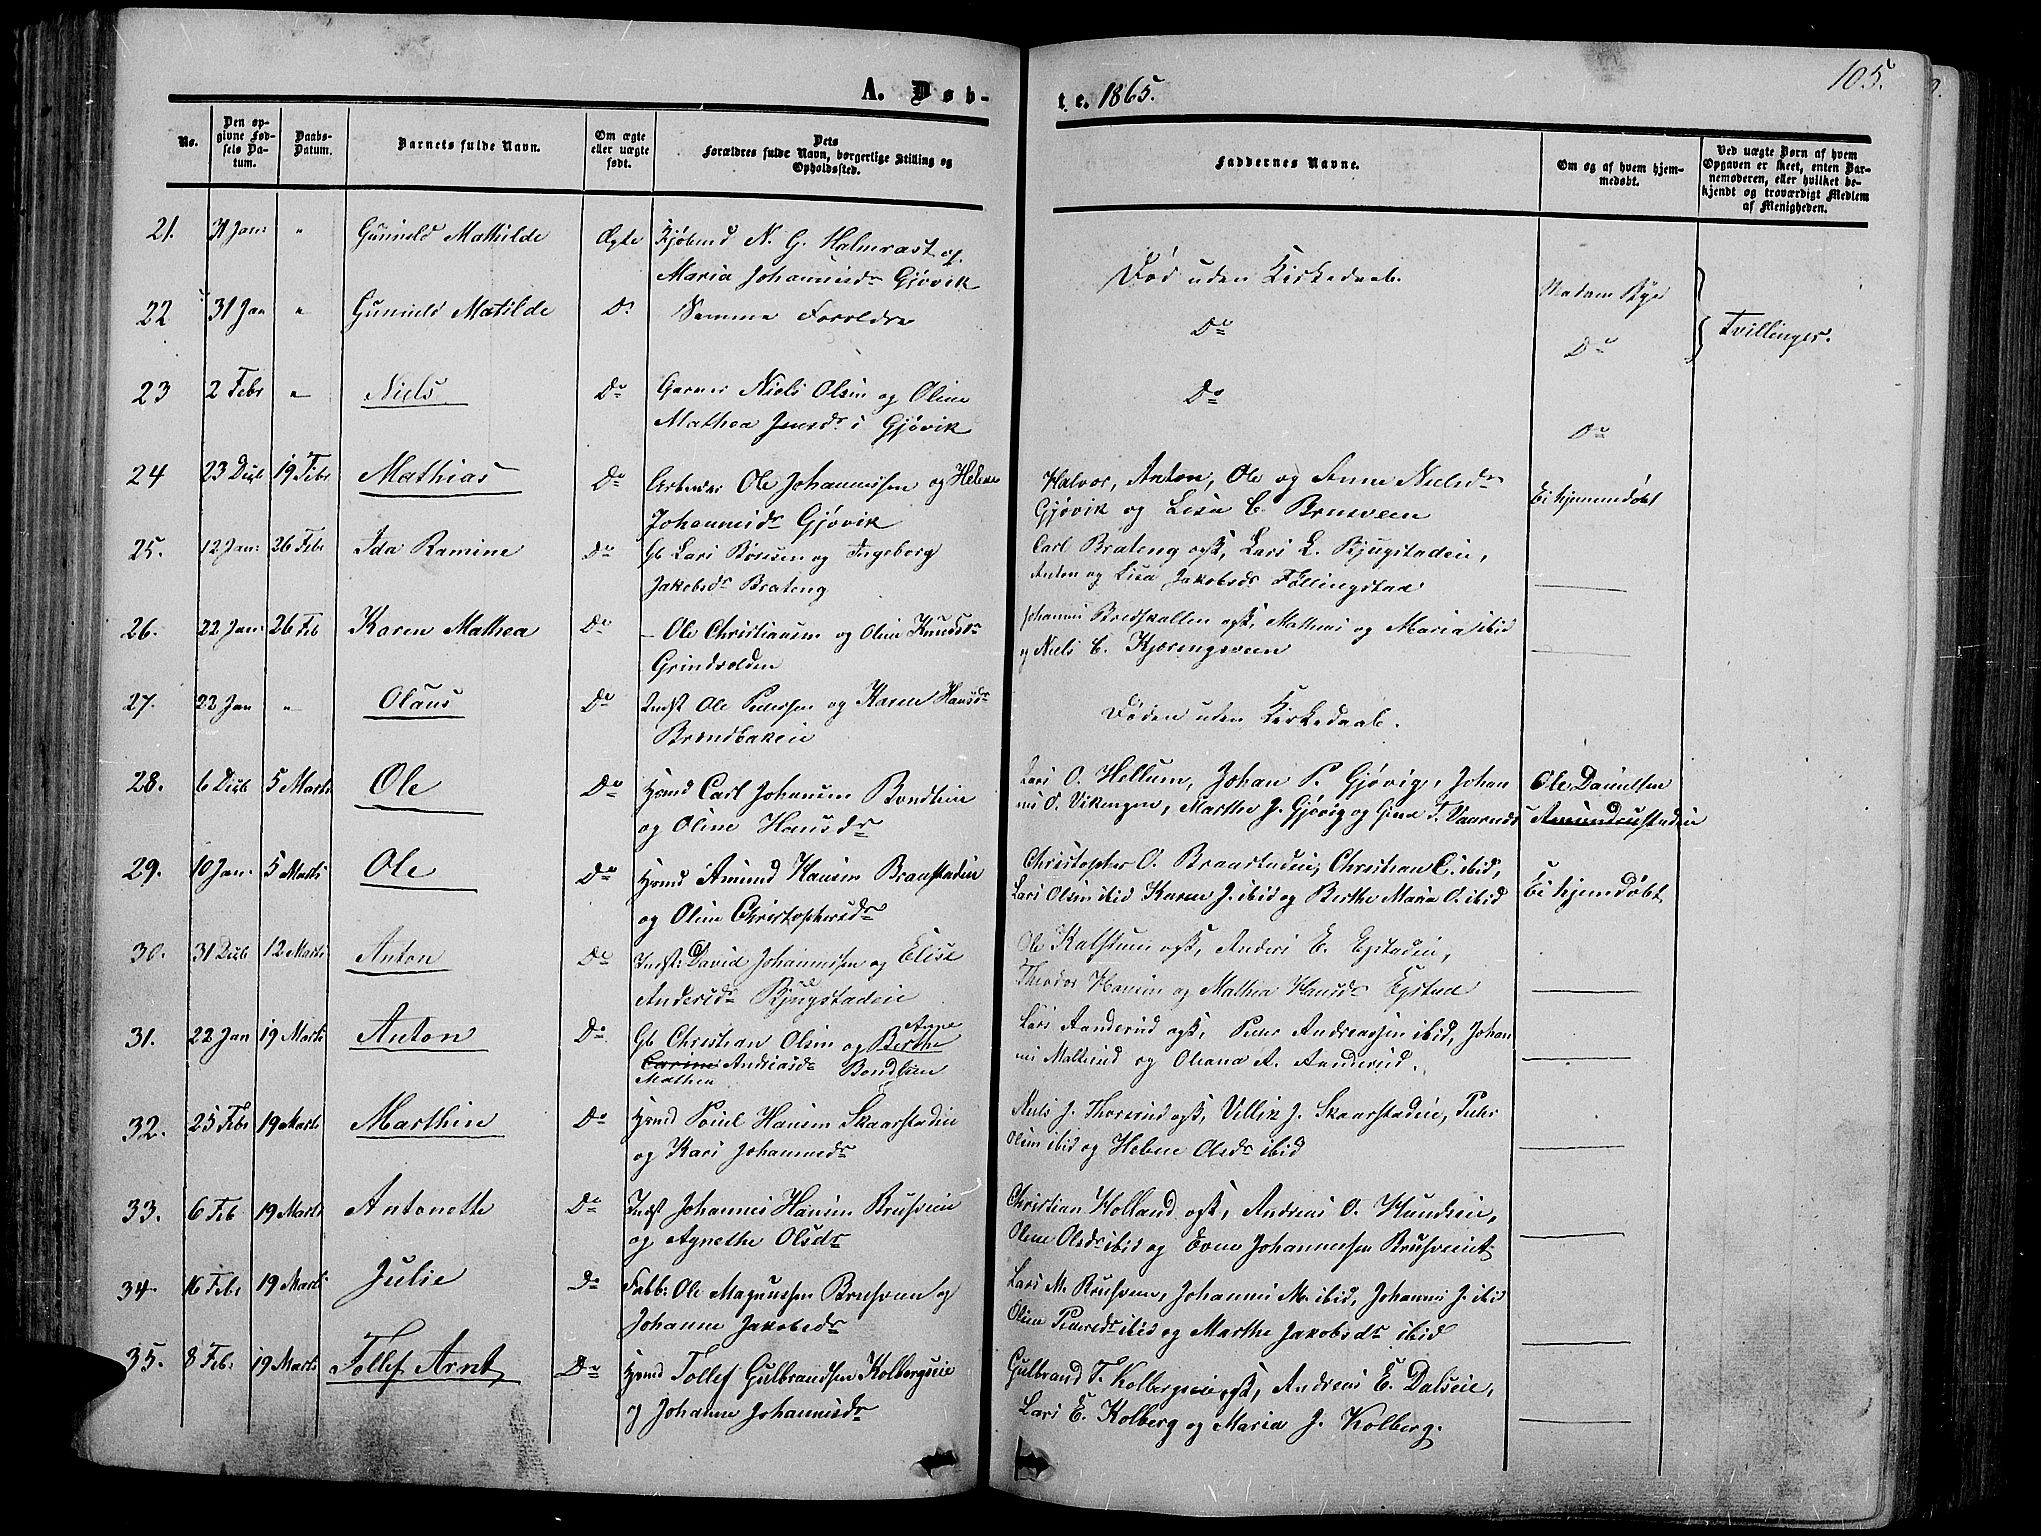 A. Døb-
t. e. 1865.
105.
No.
Den op-
givne Fød-
sels Da-
tum.
Daabs-
Datum.
Barnets fulde Navn.
Om ægte
eller uægte
født.
Dets
Forældres fulde Navn, borgerlige Stilling og
Opholdssted.
Faddernes Navne.
Om og af hvem hjem-
medøbt.
Ved uægte Børn af hvem
Opgaven er skeet, enten Bar-
nemoderen, eller hvilket be-
kjendt og troværdigt Medlem
af Menigheden.
21. 31 Jan: " Mathilde Ægte Kjøbmd N. G. Halmrast og
Maria Johannesdr Gjøvik
Død uden Kirkedaab. Madam Rye
22 31 Jan " Matilde Do Samme Forældre
Do Do Tvillinger.
23 2 Febr " Niels Do Garver Niels Olsen og Oline
Mathea Jensdr i Gjøvik
Do Do
24 23 Decb 19 Febr Mathias Do Arbeider Ole Johannessen og Helene
Johannesdr Gjøvik
Halvor, Anton, Ole og Anne Nielsdr
Gjøvik og Lisa C. Brusveen
Ei hjemmedøbt
25. 12 Jan: 26 Febr Ida Ramine Do Gb Lars Børesen og Ingeborg
Jakobsdr Brateng
Carl Brateng ogsk, Lars L. Rjugstadeie,
Anton og Lisa JakobsdrFøllingstad
26. 22 Jan: 26 Feb Karen Mathea Do — Ole Christiansen og Oline Knudsdr
Grindvolden
Johannes Bredskallen ogsk, Mathias og Maria ibid
og Niels C. Kjæringsveen
27. 22 Jan " Olaus Do Indst Ole Pedersen og Karen Hansdr
Brændbakeie
Døden uden Kirkedaab.
28. 6 Decb 5 Marts Ole Do Hsmd Carl Johansen Bondleie
og Oline Hansdr
Lars O. Hellum, Johan P. Gjøvig, Johan
nes O. Vikingen, Marthe J. Gjøvig og Sina T. Vaarnæs
Ole Danielsen
Amundrustadeie
29. 10 Jan: 5 Marts Ole Do Hsmd Amund Hansen Braastadeie
og Oline Christophersdr
Christopher O. Braastadeie, Christian C. ibid,
Lars Olsen ibid Karen J. ibid og Berthe Maria O. ibid
Ei hjemdøbt
30. 31 Decb 12 Marts Anton Do Indst: David Johannessen og Elise
Andersdr Rjugstadeie
Ole Kalstum ogsk, Anders E. Egstadeie,
Theodor Hansen og Mathea Hansdr Egstad
31. 22 Jan 19 Marts Anton Do Gb Christian Olsen og Berthe Anne
Carine Andreasdr Bondlien
Mathea
Lars Aanderud ogsk, Peder Andreassen ibid, Johan
nes Malterud og Oliana A. Aanderud.
32. 25 Febr 19 Marts Marthin Do Hsmd Poul Hansen Skaarstadeie
og Kari Johannesdr
Niels J. Thorsrud ogsk, Villik J. Skaarstadeie, Peder
Olsen ibid og Helene Olsdr ibid
33. 6 Feb 19 Marts Antonette Do Indst Johannes Hansen Brusveeie
og Agnethe Olsdr
Christian Holland ogsk, Andreas O. Hundseie,
Oline Olsdr ibid og Even Johannessen Brusveeie
34. 16 Febr 19 Marts Julie Do Fabb: Ole Magnussen Brusveen og
Johanne Jakobsdr
Lars M. Brusveen, Johannes M. ibid, Johannes J. ibid
Oline Pedersdr ibid og Marthe Jakobsdr ibid
35. 8 Feb: 19 Marts Tollef Arnt Do Hsmd Tollef Gulbrandsen Kolbergseie
og Johanne Johannesdr
Gulbrand T. Kolbergseie ogsk, Andreas E. Dalseie,
Lars E. Kolberg og Maria J. Kolberg.